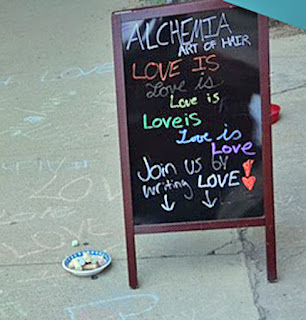 ALCHEMIA
ART OF HAIR
LOVE IS
Love is
Love is
Love is
Love is
Love
Join us by
writing LOVE!
LOVE